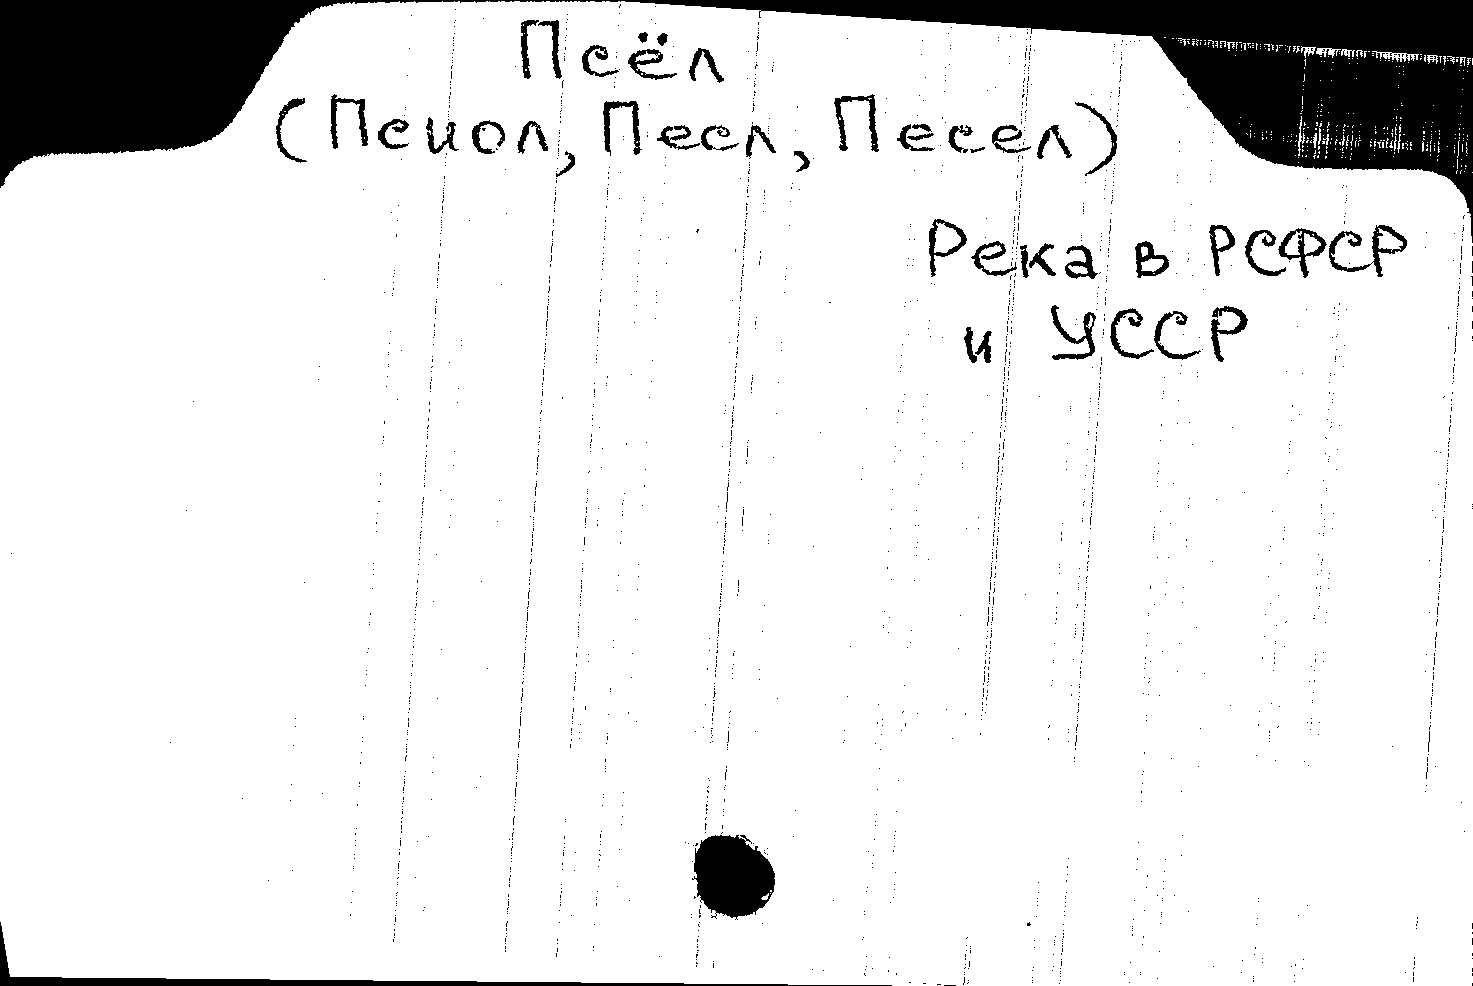 Псёл
(Псиол, Песл, Песел)
Река в РСФСР
и УССР